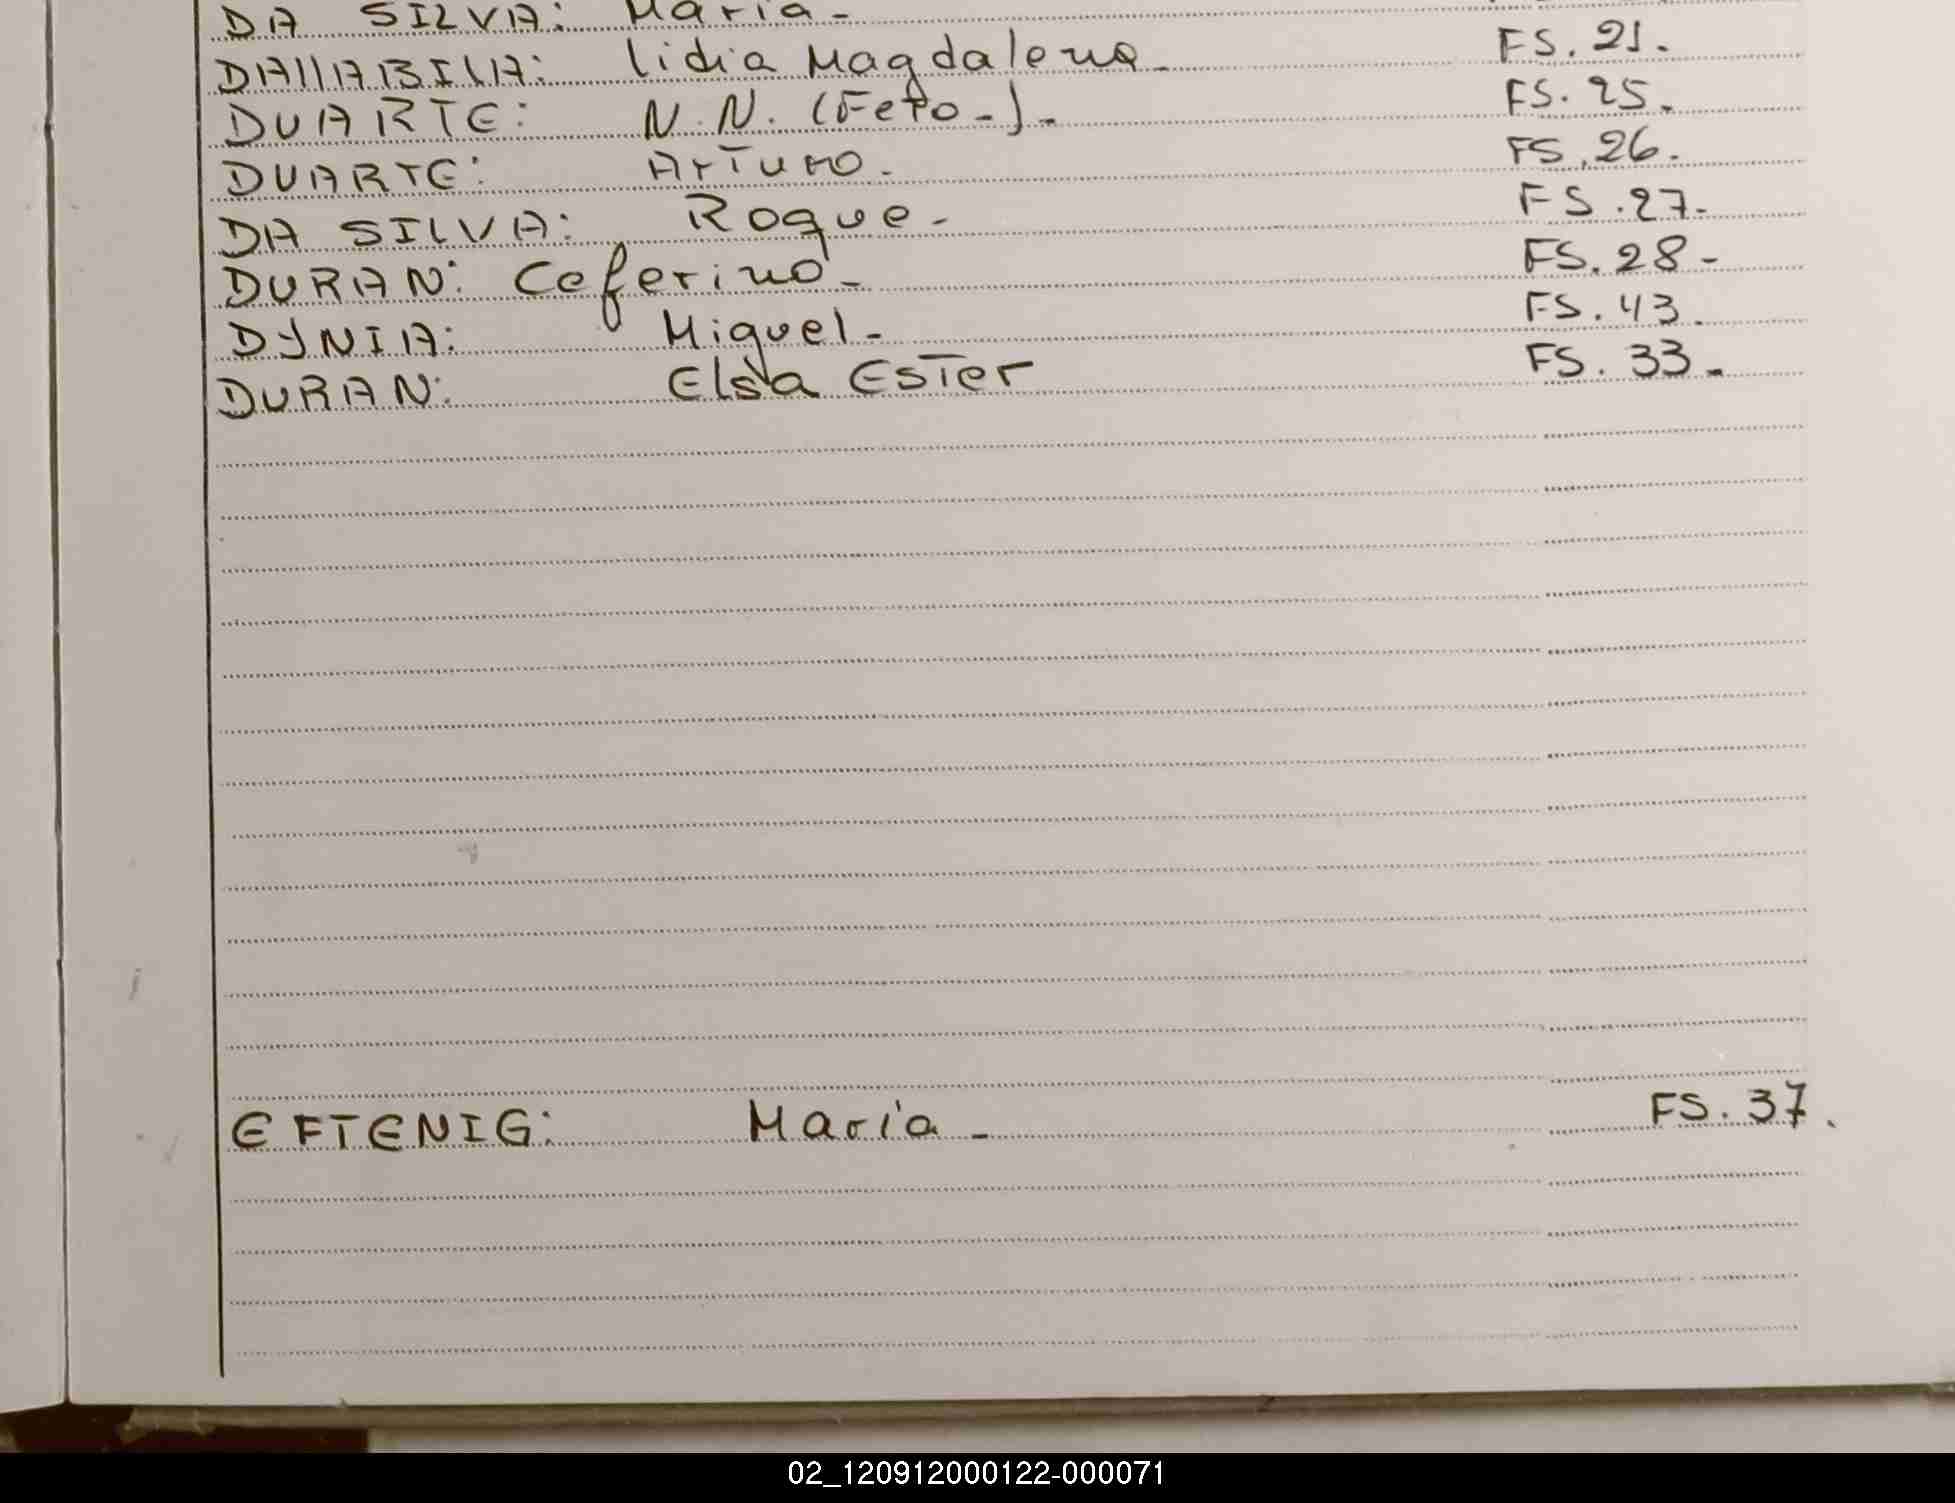 DA SILVA: Maria-
DAllABILA: lidia Magdalena- FS. 21.
DUARTE: N.N. (Feto-).- FS. 25.
DUARTE: Arturo.- FS. 26.
DA SILVA: Roque- FS. 27.
DURAN: Ceferino- FS. 28-
DYNIA: Miguel- FS. 43.
DURAN: Elsa Ester FS. 33.-
EFTENIG: María- FS. 37.
02_120912000122-000071